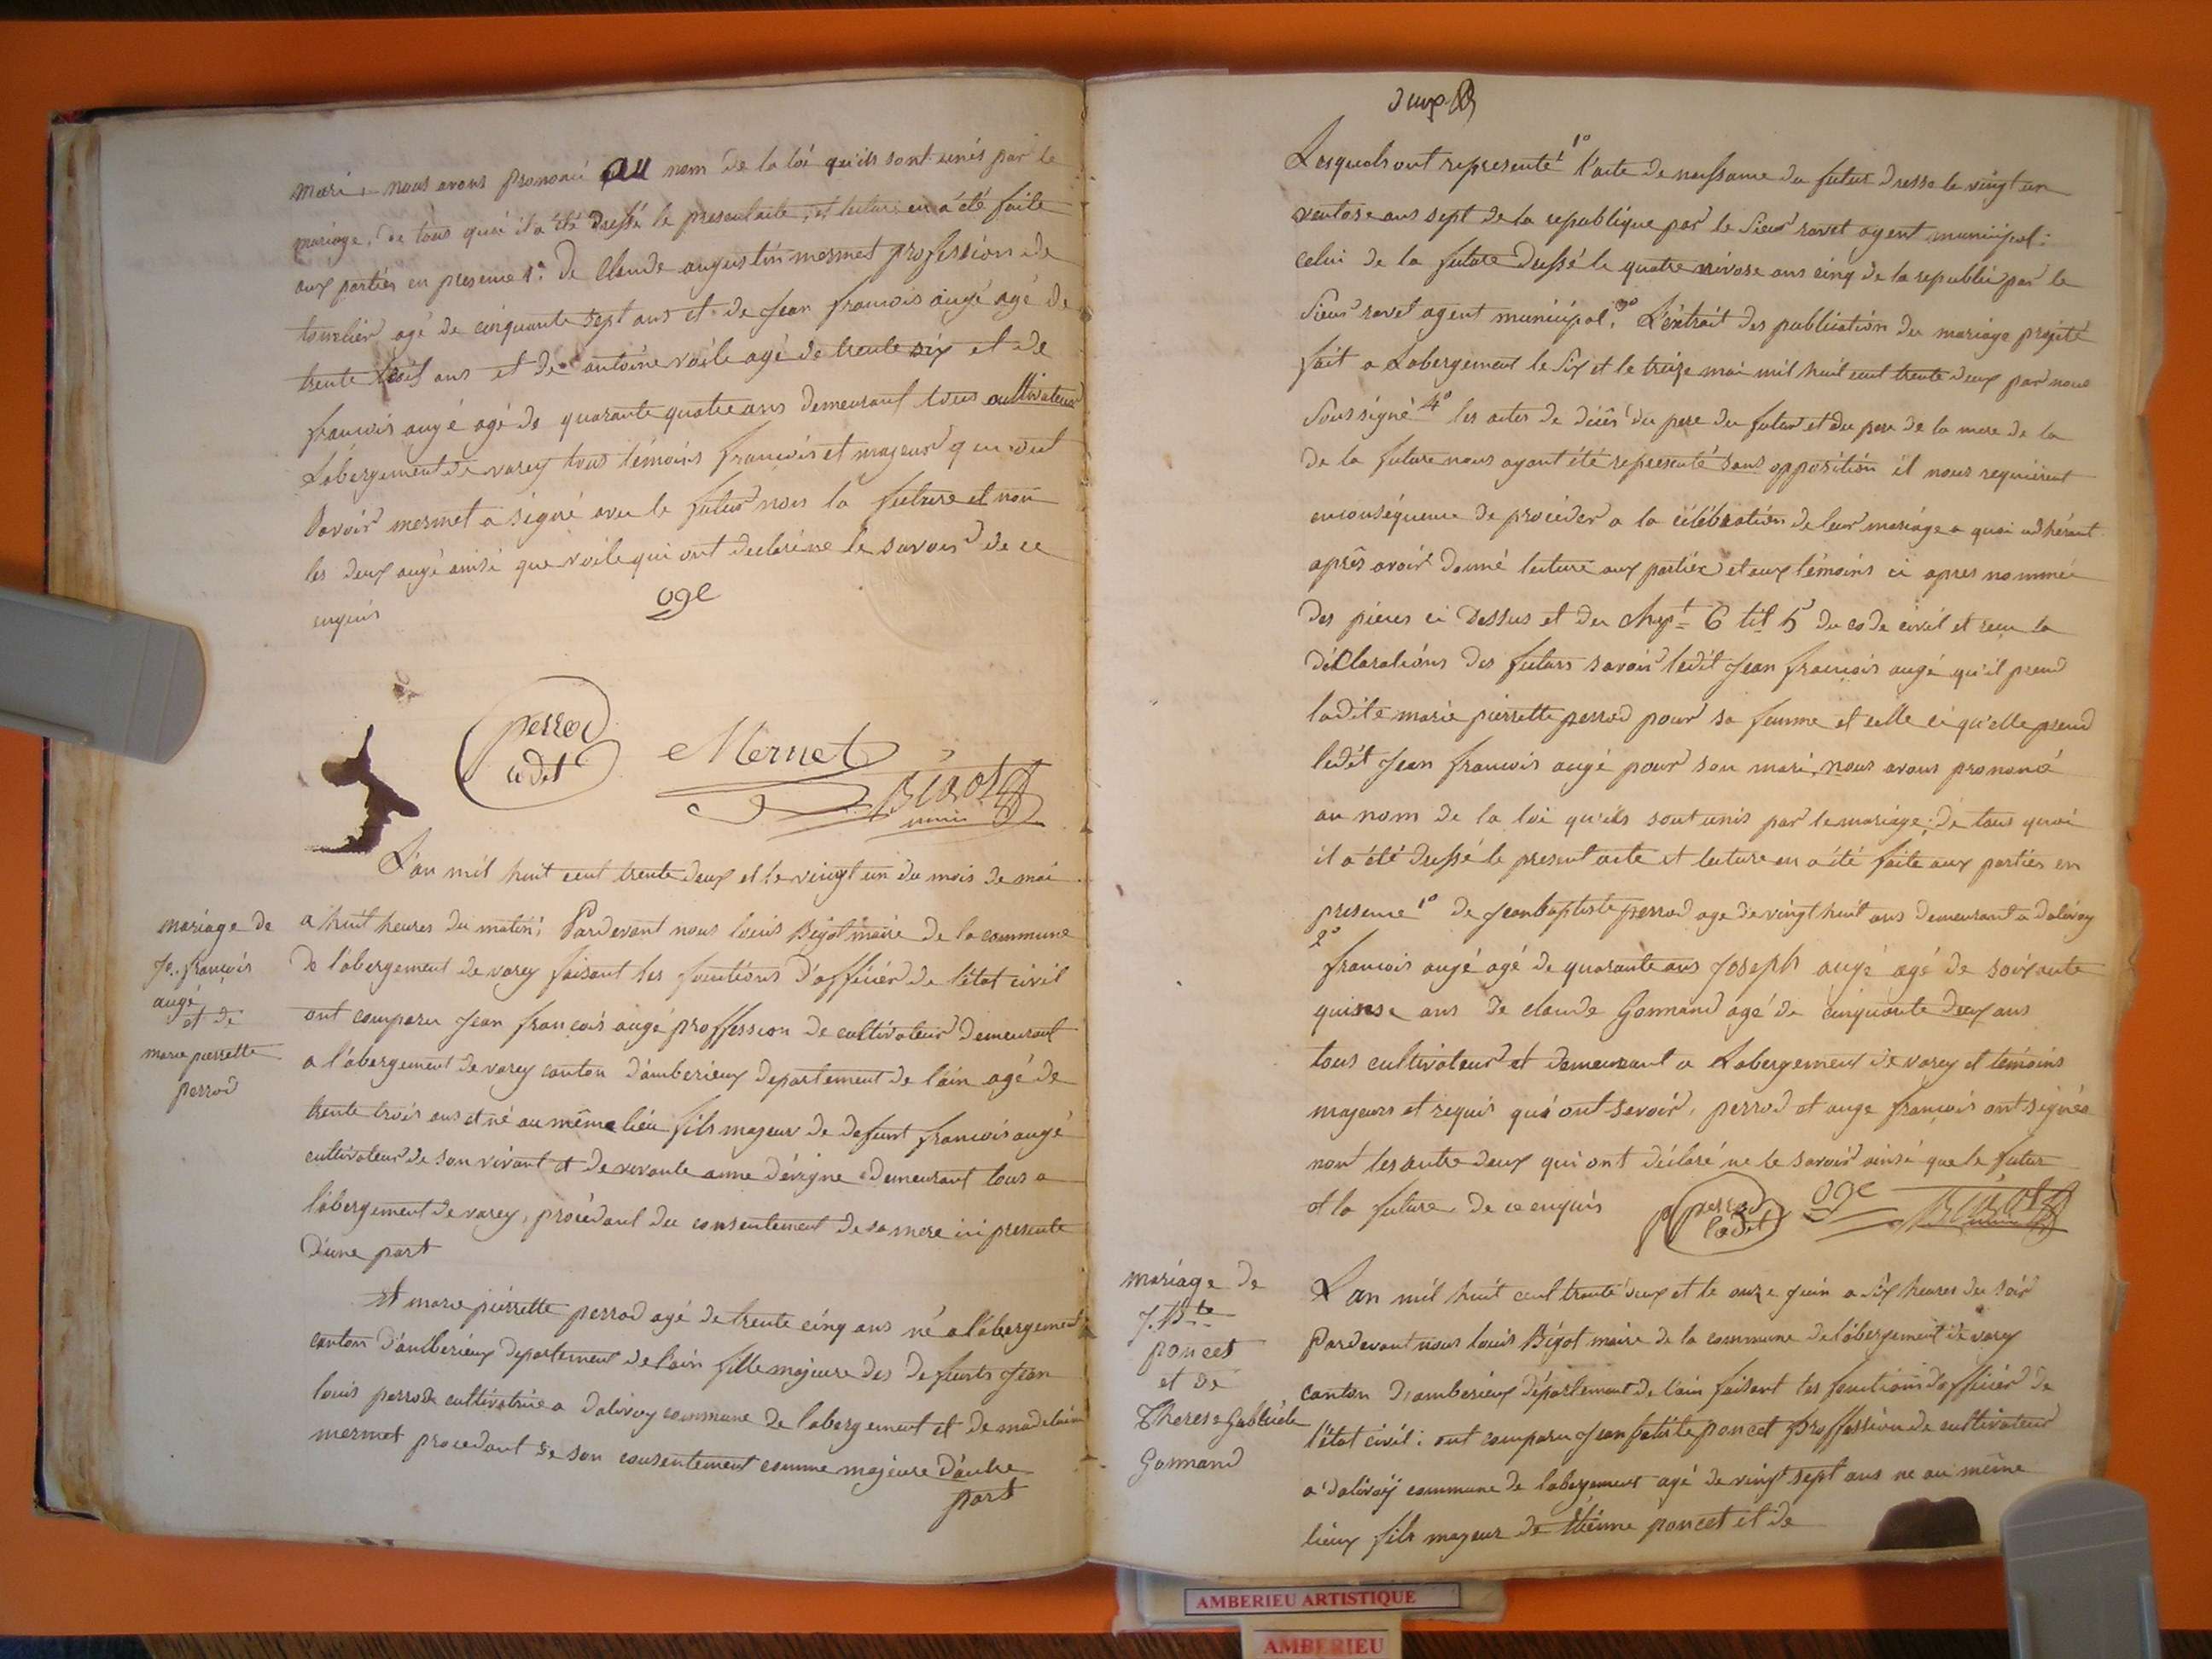 mari, nous avons prononcé au nom de la loi qu'ils sont unis par le
mariage, de tous quoi il a été dressé le present acte, et lecture en a été faite
aux parties en presence 1° de Claude augustin mermet profession de
tonnelier agé de cinquante sept ans et de Jean francois augé agé de
trente trois ans et de antoine voile agé de trente six et de
francois augé agé de quarante quatre ans demeurant tous cultivateur
Labergement de varey tous témoins francois et majeur qui ont
savoir mermet a signé avec le futur non la future et non
les deux augé ainsi que voile qui ont declaré ne le savoir de ce
enquis
oge
perrod
cadet
Mermet
Bigot
maire
L'an mil huit cent trente deux et le vingt un du mois de mai
mariage de
Je. francois
augé
et de
marie pierrette
perrod
a huit heures du matin; Pardevant nous louis Bigot maire de la commune
de l'abergement de varey faisant les fonctions d'officier de l'état civil
ont comparu Jean francois augé proffession de cultivateur demeurant
a l'abergement de varey canton d'amberieux departement de l'ain agé de
trente trois ans et né au même lieu fils majeur de defunt francois augé
cultivateur de son vivant et de vivante anne dévigne demeurant tous a
l'abergement de varey, procédant du consentement de sa mere ici presente
d'une part
et marie pierrette perrod agé de trente cinq ans né a l'abergement
canton d'amberieux departement de l'ain fille majeure des defunts Jean
louis perrod cultivatrice a dalivoy commune de labergement et de madelaine
mermet procedant de son consentement comme majeure d'autre
part
deux
Lesquels ont representé 1° l'acte de naissance du futur dressé le vingt un
ventose ans sept de la republique par le sieur ravet agent municipal:
celui de la future dressé le quatre nivose ans cinq de la republi par le
Sieur ravet agent municipal, 3° L'extrait des publication du mariage projeté
fait a Labergement le six et le treize mai mil huit cent trente deux par nous
soussigné 4° les actes de décés du pere du futur et du pere de la mere de la
de la future nous ayant été representé sans opposition il nous requierent
en conséquence de procéder a la célébration de leur mariage a quoi adhérant
après avoir donné lecture aux parties et aux témoins ci apres nommée
des pieces ci dessus et du chapt 6 tit 5 du code civil et reçu la
déclarations des futurs savoir ledit Jean francois augé qu'il prend
ladite marie pierrette perrod pour sa femme et celle ci qu'elle prend
ledit Jean francois augé pour son mari, nous avons prononcé
au nom de la loi qu'ils sont unis par le mariage; de tous quoi
il a été dressé le present acte et lecture en a été faite aux parties en
presence 1° de Jean baptiste perrod age de vingt huit ans demeurant a dalivoy
2° francois augé agé de quarante ans Joseph augé agé de soixante
quinse ans de claude Gonnand agé de cinquante deux ans
tous cultivateur et demeurant a Labergement de varey et temoins
majeurs et requis qui ont savoir, perrod et auge francois ont signés
non les autre deux qui ont déclaré ne le savoir ainsi que le futur
et la future de ce enquis
perrod
cadet
oge
Bigot
maire
mariage de
J. Bte
poncet
et de
Therese Gabriele
Gonnand
L'an mil huit cent trente deux et le onze Juin a six heures du soir
Pardevant nous louis Bigot maire de la commune de l'abergement de varey
canton d'amberieux département de l'ain faisant les fonctions d'officier de
l'état civil: ont comparu Jean batiste poncet proffession de cultivateur
a dalivoy commune de labergement agé de vingt sept ans ne au même
lieux fils majeur de Etienne poncet et de
AMBERIEU ARTISTIQUE
AMBERIEU